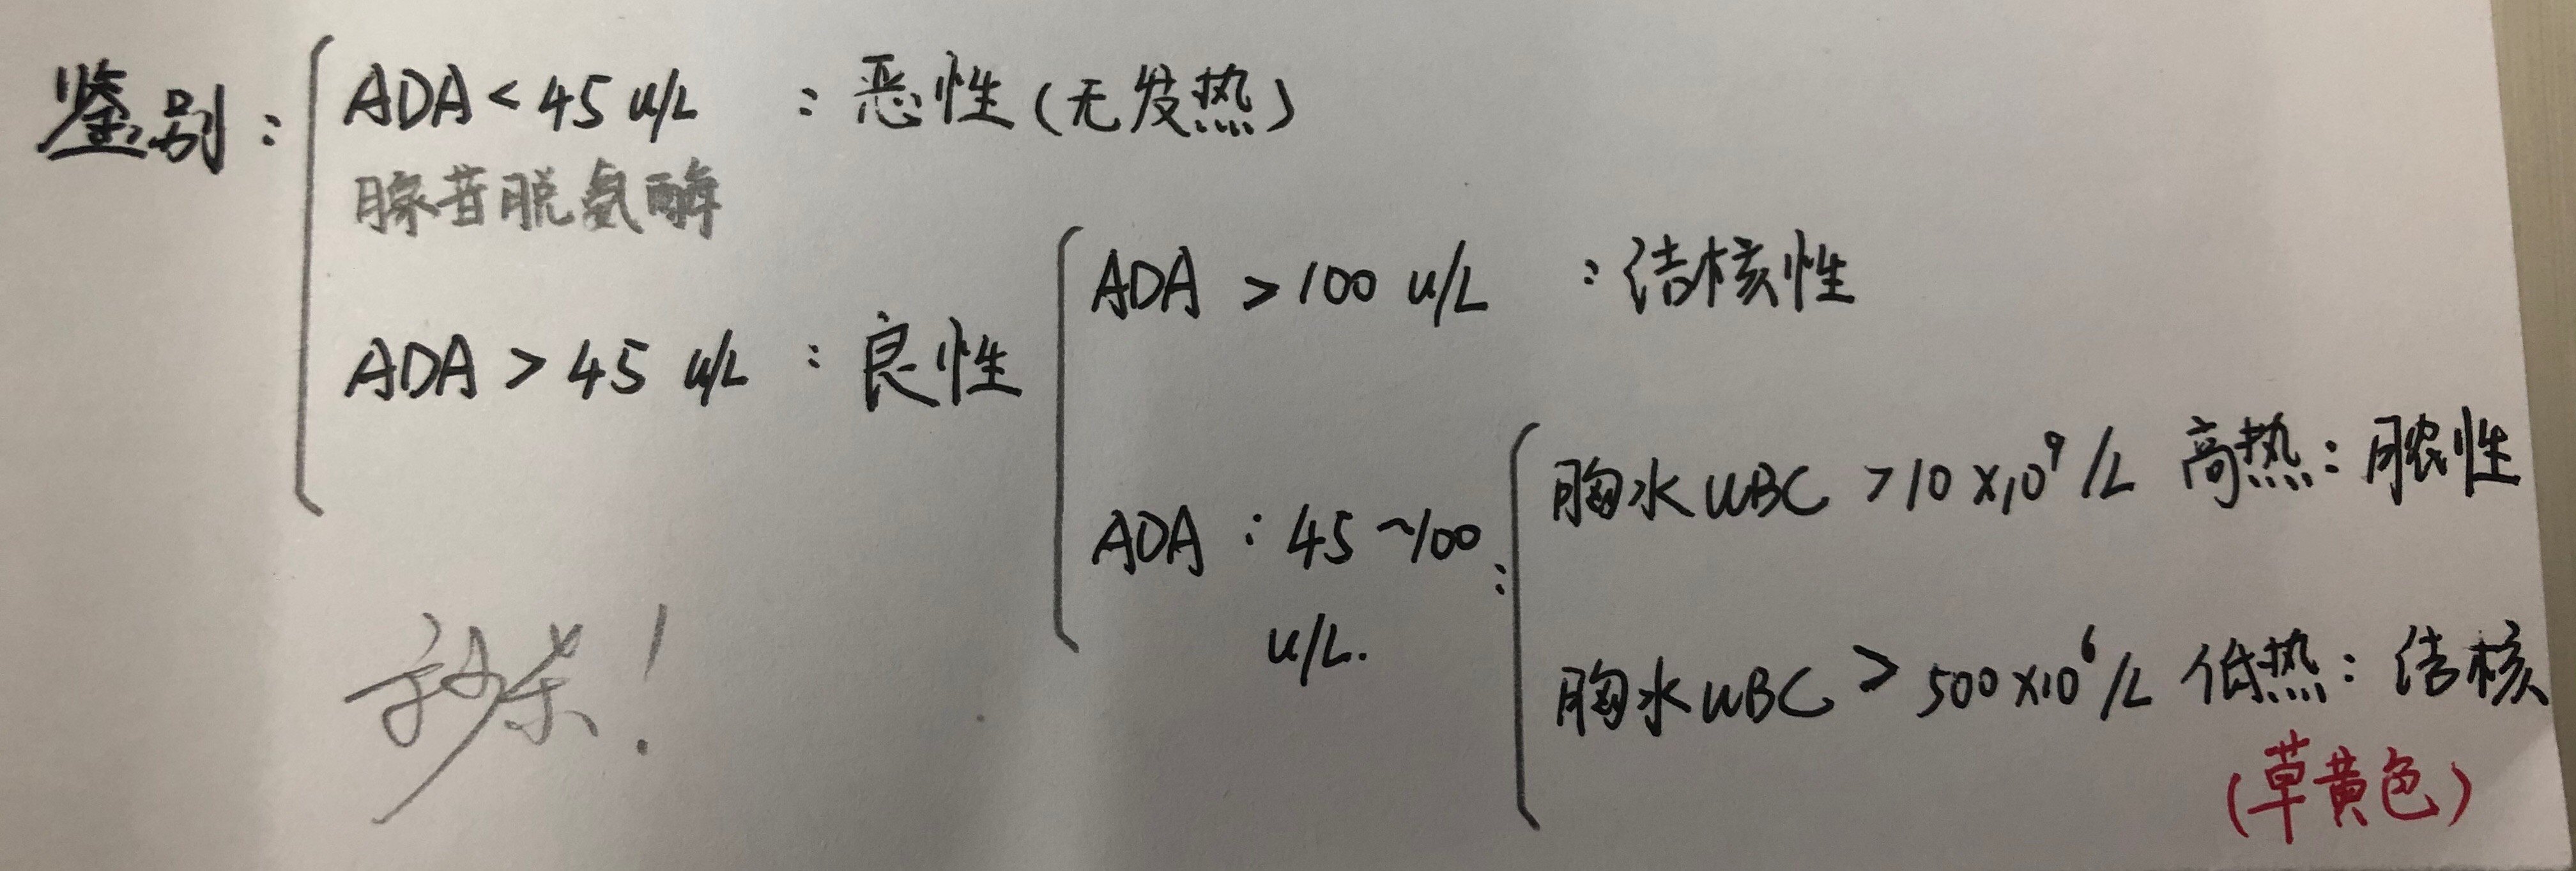 鉴别：
ADA < 45 u/L ：恶性（无发热）
腺苷脱氨酶
ADA > 45 u/L ：良性
ADA > 100 u/L ：结核性
ADA ：45～100 u/L.：
胸水WBC >10×10⁹/L 高热：脓性
胸水WBC > 500×10⁶/L 低热：结核
（草黄色）
秒杀！